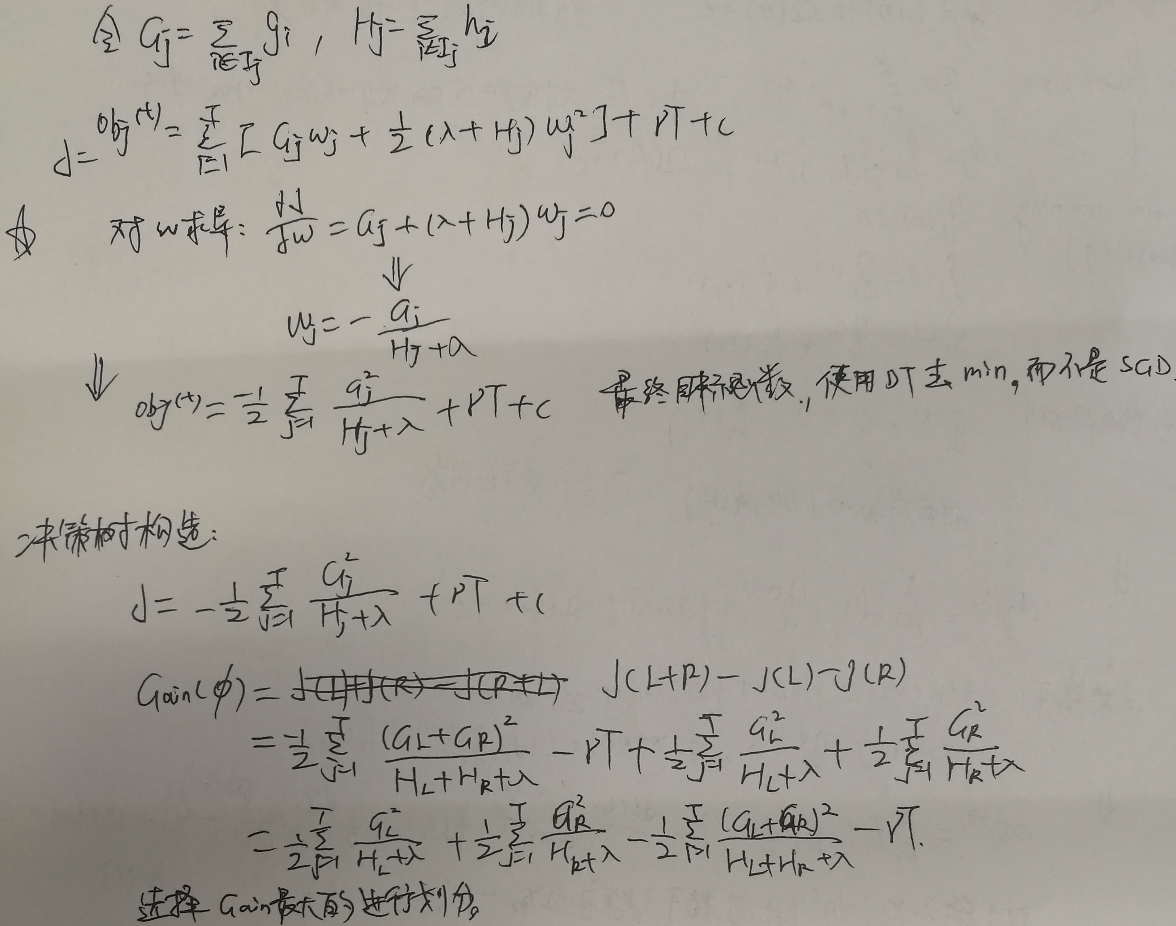 令 Gj = Σ_{i∈Ij} gi , Hj = Σ_{i∈Ij} hi
J = Obj^(t) = Σ_{i=1}^{T} [ Gj wj + 1/2 (λ + Hj) wj² ] + rT + c
☆ 对 w 求导: dJ/dw = Gj + (λ + Hj) wj = 0
⇓
wj = - Gj / (Hj + λ)
⇓ obj^(t) = -1/2 Σ_{j=1}^{T} Gj² / (Hj + λ) + rT + c 最终目标函数,使用DT去min,而不是SGD
决策树构造:
J = -1/2 Σ_{j=1}^{T} Gj² / (Hj + λ) + rT + c
Gain(φ) = J(L+R) - J(L) - J(R)
= -1/2 Σ_{j=1}^{T} (GL + GR)² / (HL + HR + λ) - rT + 1/2 Σ_{j=1}^{T} GL² / (HL + λ) + 1/2 Σ_{j=1}^{T} GR² / (HR + λ)
= 1/2 Σ_{j=1}^{T} GL² / (HL + λ) + 1/2 Σ_{j=1}^{T} GR² / (HR + λ) - 1/2 Σ_{j=1}^{T} (GL + GR)² / (HL + HR + λ) - rT.
选择 Gain最大的进行划分。